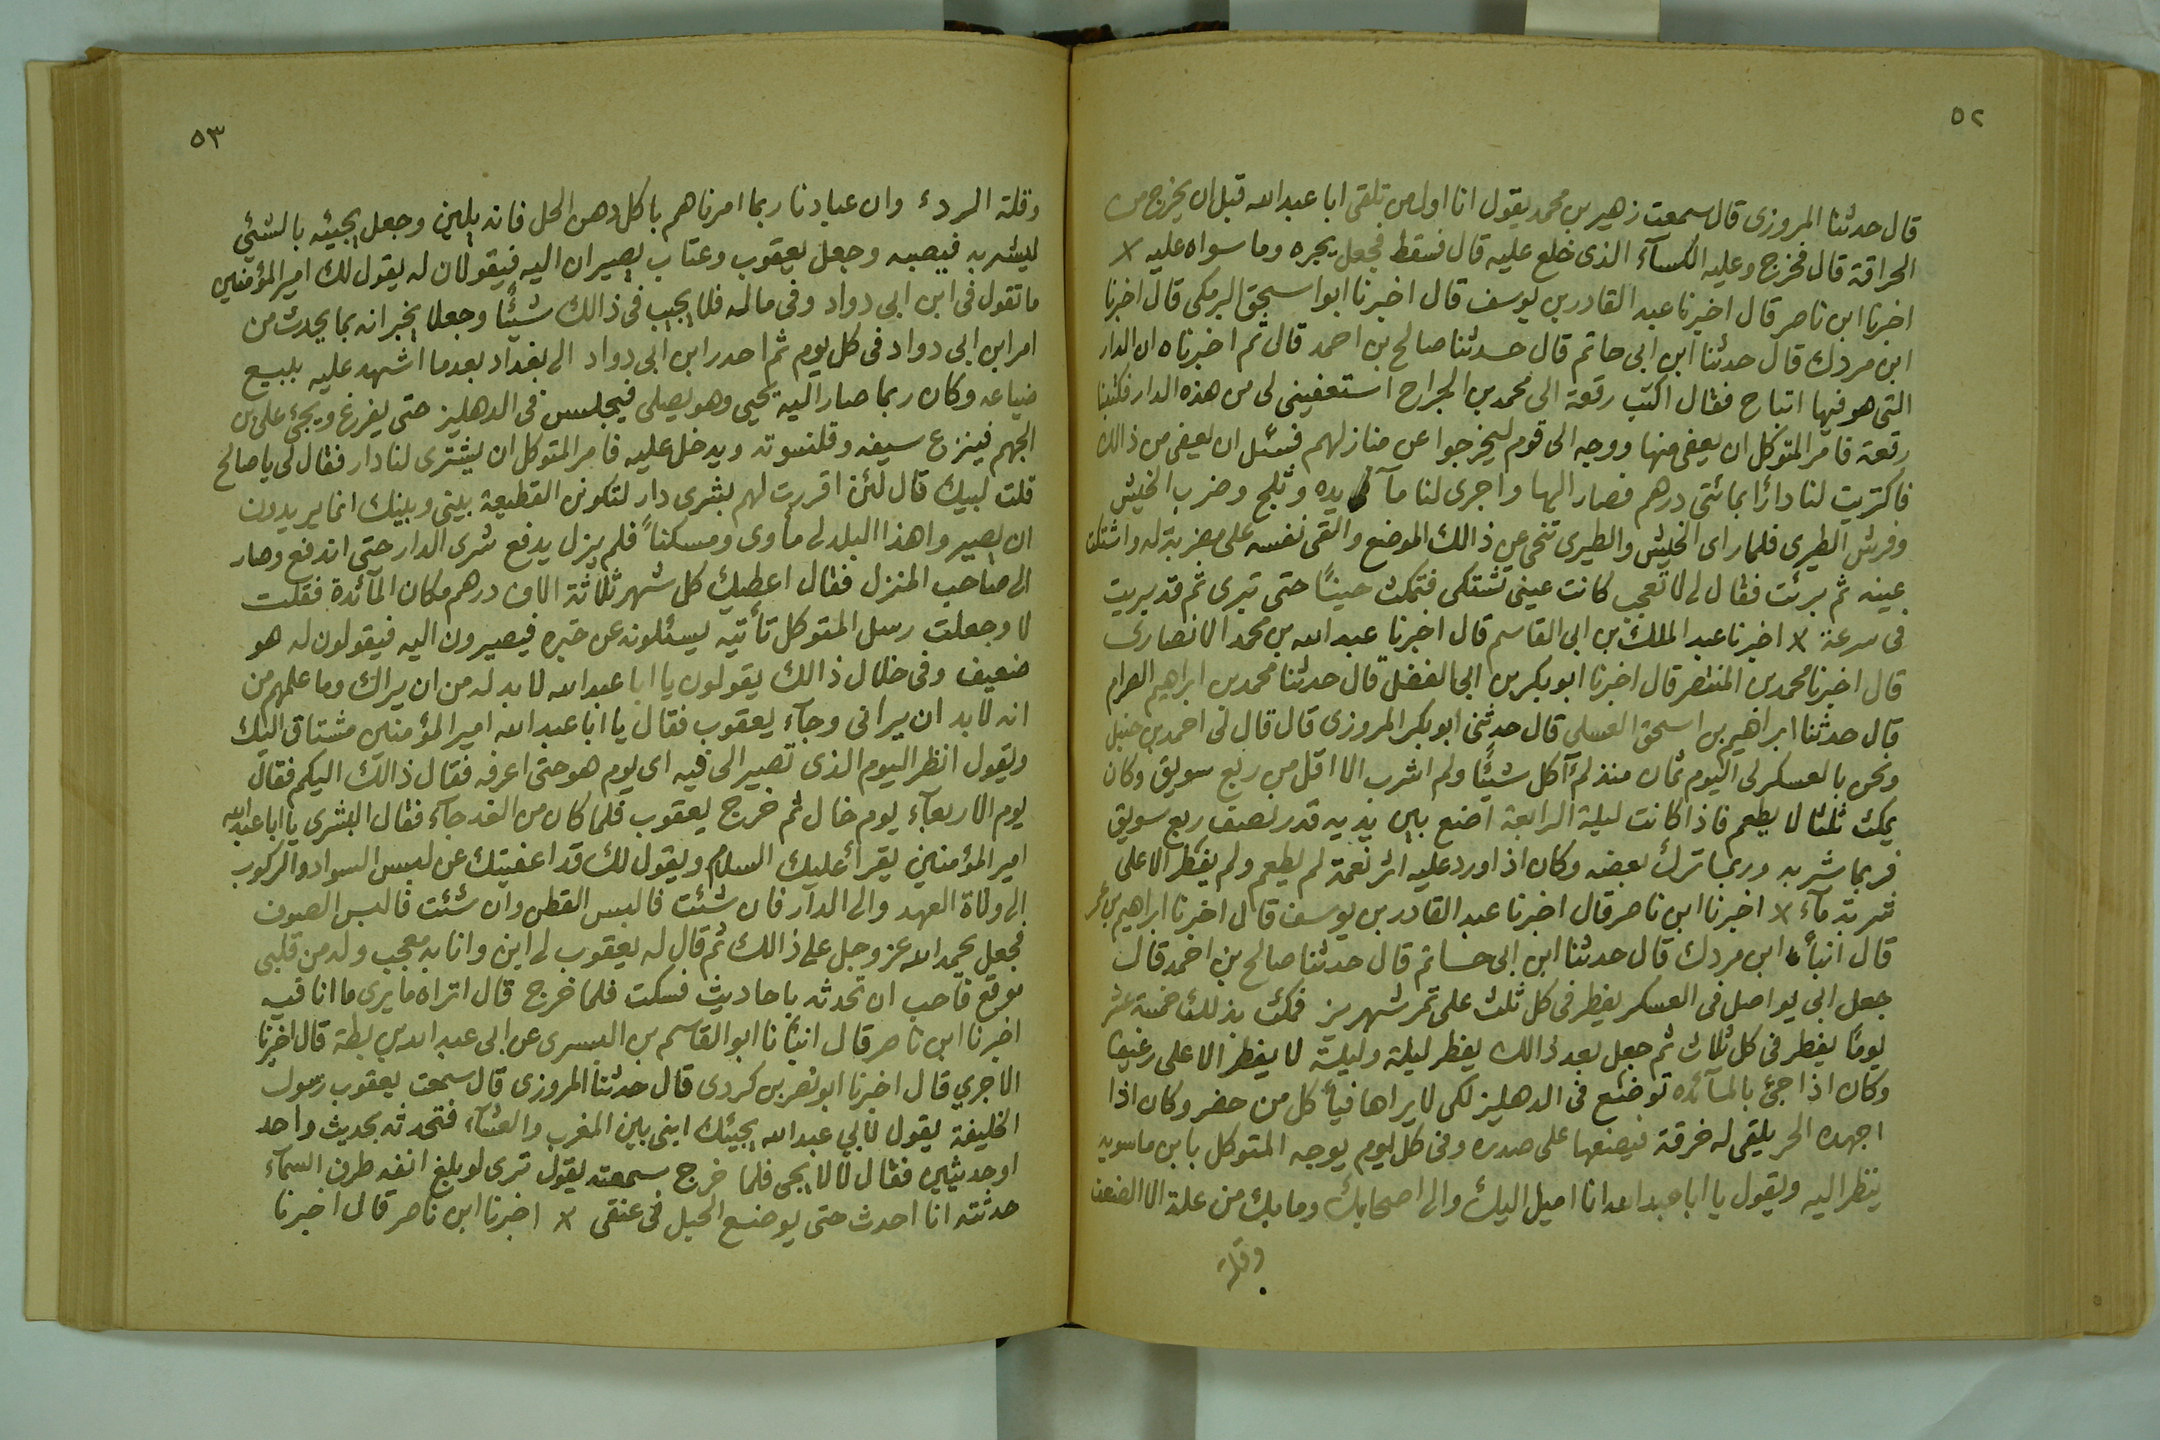 ٥٢
قال حدثنا المروزى قال سمعت زهير بن محمد يقول انا اول من تلقى ابا عبد الله قبل ان يخرج من
الحراقة قال فخرج وعليه الكسآء الذى خلع عليه قال فسقط فجعل يجره وما سواه عليه ×
اخبرنا ابن ناصر قال اخبرنا عبد القادر بن يوسف قال اخبرنا ابو اسحق البرمكى قال اخبرنا
ابن مردك قال حدثنا ابن ابى حاتم قال حدثنا صالح بن احمد قال ثم اخبرناه ان الدار
التى هو فيها اتباخ فقال اكتب رقعة الى محمد بن الجراح استعفينى لى من هذه الدار فكتبنا
رقعة فامر المتوكل ان يعفى منها ووجه الى قوم ليخرجوا عن منازلهم فسئل ان يعفى من ذالك
فاكتريت لنا دارًا بمائتى درهم فصار اليها واجرى لنا مآ يده وثلج وضرب الخليش
وفرش الطبرى فلما راى الخليش والطبرى تنحى عن ذالك الموضع والقى نفسه على مضربة له واشتكت
عينه ثم برئت فقال لى لا تعجب كانت عينى تشتكى فتمكث حينًا حتى تبرى ثم قد بريت
فى سرعة × اخبرنا عبد الملك بن ابى القاسم قال اخبرنا عبد الله بن محمد الانصارى
قال اخبرنا محمد بن المنتصر قال اخبرنا ابو بكر بن ابى الفضل قال حدثنا محمد بن ابراهيم الصرام
قال حدثنا ابراهيم بن اسحق الغسلى قال حدثنى ابو بكر المروزى قال قال لى احمد بن حنبل
ونحن بالعسكر لى اليوم ثمان منذ لم آكل شيئًا ولم اشرب الا اقل من ربع سويق وكان
يمكث ثلثا لا يطعم فاذا كانت ليلة الرابعة اضع بين يديه قدر نصف ربع سويق
فربما شربه وربما ترك بعضه وكان اذا ورد عليه اثر نغمة لم يطعم ولم يفطر الا على
شربة مآء × اخبرنا ابن ناصر قال اخبرنا عبد القادر بن يوسف قال اخبرنا ابراهيم بن عمر
قال انبأ ابن مردك قال حدثنا ابن ابى حساتم قال حدثنا صالح بن احمد قال
جعل ابى يواصل فى العسكر يفطر فى كل ثلث على تمر شهريز فمكث بذلك خمسة عشر
يومًا يفطر فى كل ثلاث ثم جعل بعد ذالك يفطر ليلة وليلة لا يفطر الا على رغيف
وكان اذا جئ بالمآئده توضع فى الدهليز لكى لا يراها فيأكل من حضر وكان اذا
اجهده الحر يلقى له خرقة فيضعها على صدره وفى كل يوم يوجه المتوكل بابن ماسويه
ينظر اليه ويقول يا ابا عبد الله انا اميل اليك والى اصحابك وما بك من علة الا الضعف
وقلة
٥٣
وقلة الردء وان عبادنا ربما امرناهم باكل دهن الحل فانه يلين وجعل يجيئه بالشئى
ليشربه فيصبه وجعل يعقوب وعتاب يصيران اليه فيقولان له يقول لك امير المؤمنين
ما تقول فى ابن ابى دواد وفى ماله فلا يجيب فى ذالك شيئًا وجعلا يخبرانه بما يحدث من
امر ابن ابى دواد فى كل يوم ثم احدر ابن ابى دواد الى بغداد بعدما اشهد عليه ببيع
ضياعه وكان ربما صار اليه يحيى وهو يصلى فيجلس فى الدهليز حتى يفرغ ويجئ على بن
الجهم فينزع سيفه وقلنسوته ويدخل عليه فامر المتوكل ان يشترى لنا دار فقال لى يا صالح
قلت لبيك قال لئن اقررت لهم بشرى دار لتكونن القطيعة بينى وبينك انما يريدون
ان يصيروا هذا البلد لى مأوى ومسكنًا فلم يزل يدفع شرى الدار حتى اندفع وصار
الى صاحب المنزل فقال اعطيك كل شهر ثلاثة الاف درهم مكان المآئدة فقلت
لا وجعلت رسل المتوكل تأتيه يسئلونه عن خبره فيصيرون اليه فيقولون له هو
ضعيف وفى خلال ذالك يقولون يا ابا عبد الله لا بد له من ان يراك وما علمهم من
انه لا بد ان يرانى وجآء يعقوب فقال يا ابا عبد الله امير المؤمنين مشتاق اليك
ويقول انظر اليوم الذى تصير الى فيه اى يوم هو حتى اعرفه فقال ذالك اليكم فقال
يوم الاربعآء يوم خال ثم خرج يعقوب فلما كان من الغد جآء فقال البشرى يا ابا عبد الله
امير المؤمنين يقرأ عليك السلام ويقول لك قد اعفيتك عن لبس السواد والركوب
الى ولاة العهد والى الدار فان شئت فالبس القطن وان شئت فالبس الصوف
فجعل يحمد الله عز وجل على ذالك ثم قال له يعقوب لى ابن وانا به معجب وله من قلبى
موقع فاحب ان تحدثه باحاديث فسكت فلما خرج قال اتراه ما يرى ما انا فيه
اخبرنا ابن ناصر قال انبأنا ابو القاسم بن البسرى عن ابى عبد الله بن بطة قال اخبرنا
الاجرى قال اخبرنا ابو نصر بن كردى قال حدثنا المروزى قال سمعت يعقوب رسول
الخليفة يقول لابي عبد الله يجيئك ابنى بين المغرب والعشآء فتحدثه بحديث واحد
او حديثين فقال لا لا يجى فلما خرج سمعته يقول ترى لو بلغ انفه طرف السمآء
حدثته انا احدث حتى يوضع الحبل فى عنقى × اخبرنا ابن ناصر قال اخبرنا